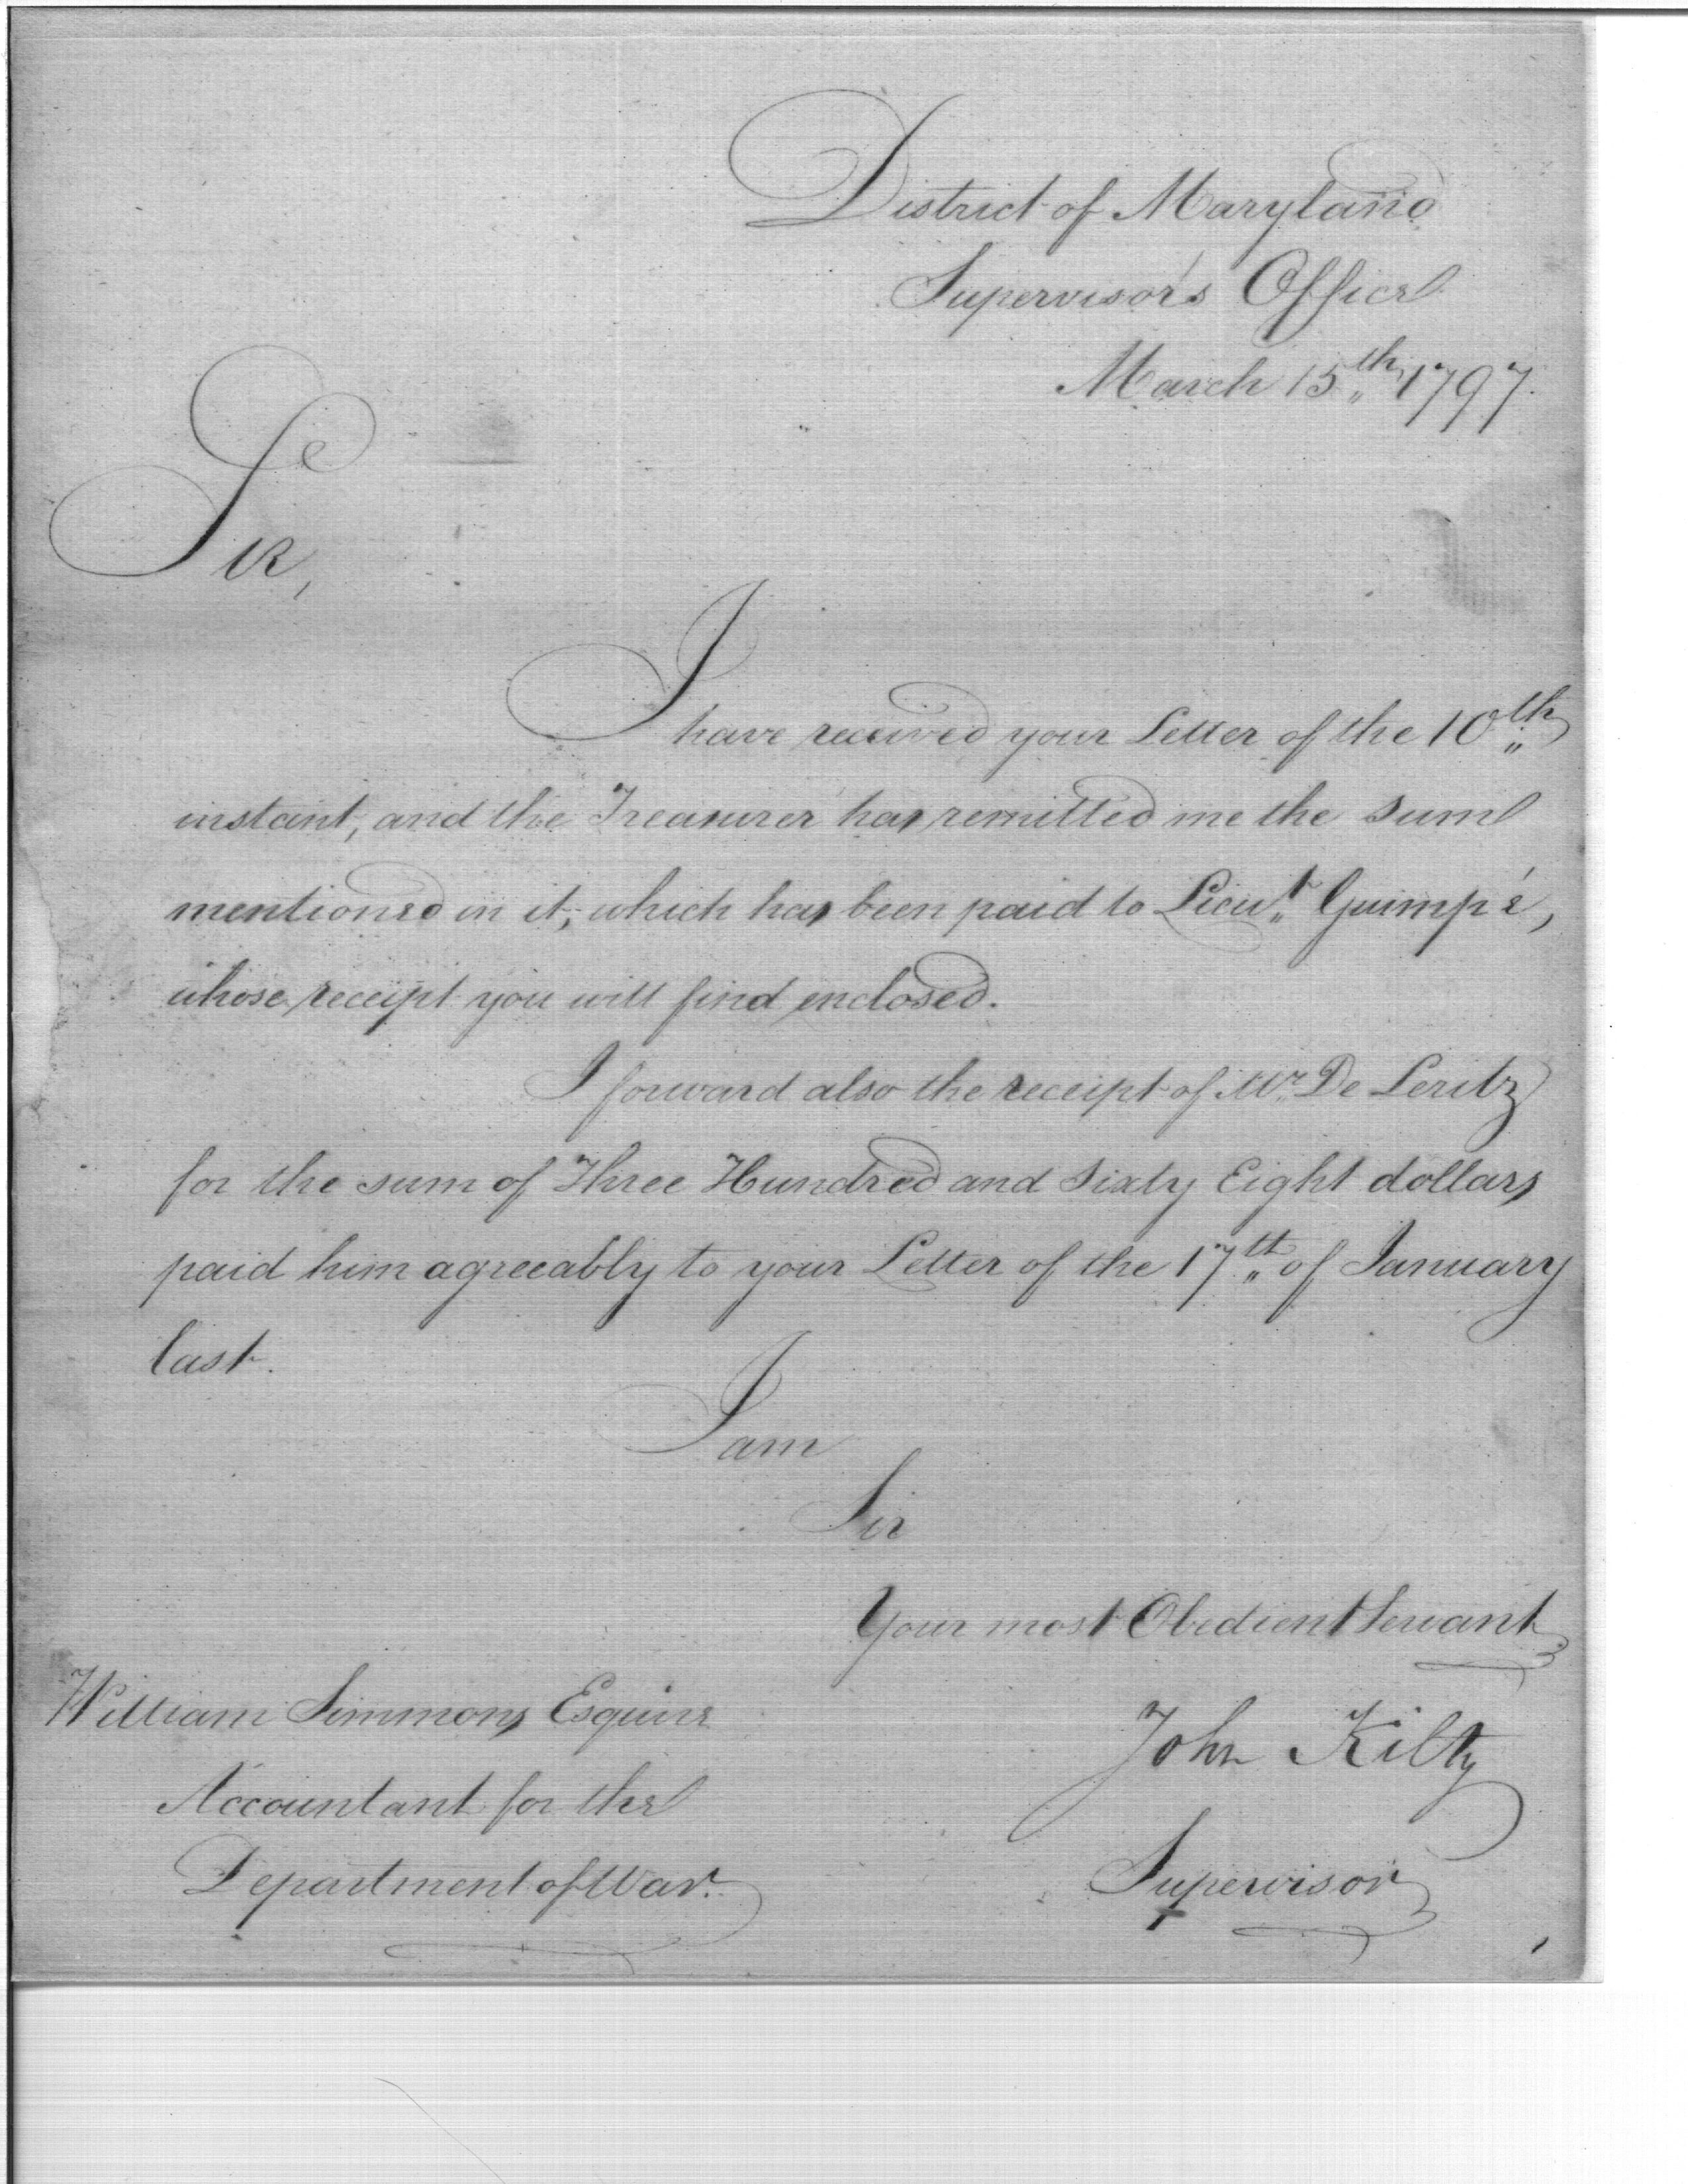 District of Maryland
Supervisor's Office
March 15th 1797.
Sir,
I have received your Letter of the 10th
instant, and the Treasurer has remitted me the sum
mentioned in it, which has been paid to Lieut. Guimpé,
whose receipt you will find enclosed.
I forward also the receipt of Mr. De Leritz
for the sum of Three Hundred and Sixty Eight dollars
paid him agreeably to your Letter of the 17th of January
last.
I am
Sir
Your most Obedient Servant
William Simmons Esquire
John Kilty
Accountant for the
Department of War.
Supervisor